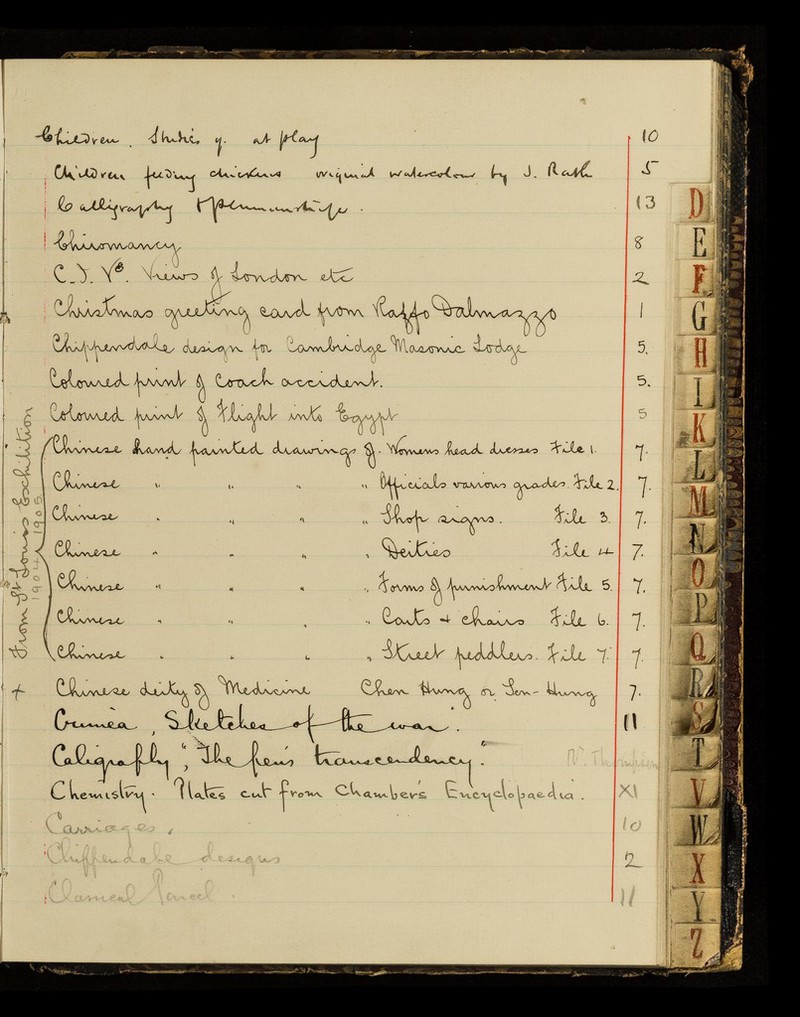 Children. Studies of. at play 10
Children feeding chickens original watercolour by J. Rath 5
Calligraphy & Penmanship. 13
Chiromancy 8
C. J. Vs. Views of London etc 2
Christmas greeting card from Raffo Dalmazzo 1
Chippendale design for Cambridge Masonic Lodge 5.
Coloured print of Coach accident. 5.
Coloured print of Flight into Egypt 5
From St Louis Exhibition
1904 1905
Chinese hand painted drawings of. Womens head dresses File 1. 7.
Chinese " " " " Officials various grades. File 2. 7.
Chinese " " " " Shop signs. File 3. 7.
Chinese " " " " Deities File 4 7.
Chinese " " " " Forms of punishment File 5. 7.
Chinese " " " " Carts & chairs File 6. 7.
Chinese " " " " Street peddlers. File 7. 7.
+ Chinese deity of Medicine Chen Hung or Sen-Hung 7.
Crimea, Sketches of the war. 11
Caligraphy "The pen's transcendency." W. Thompson
Chemistry. Plates cut from Chambers Encyclopaedia. XI
Carriages, 10
Chippendale designs 2
Classical Parcel. 11
D
E
F
G
H
I
K
L
M
N
O
P
Q
R
S
T
V
W
X
Y
Z